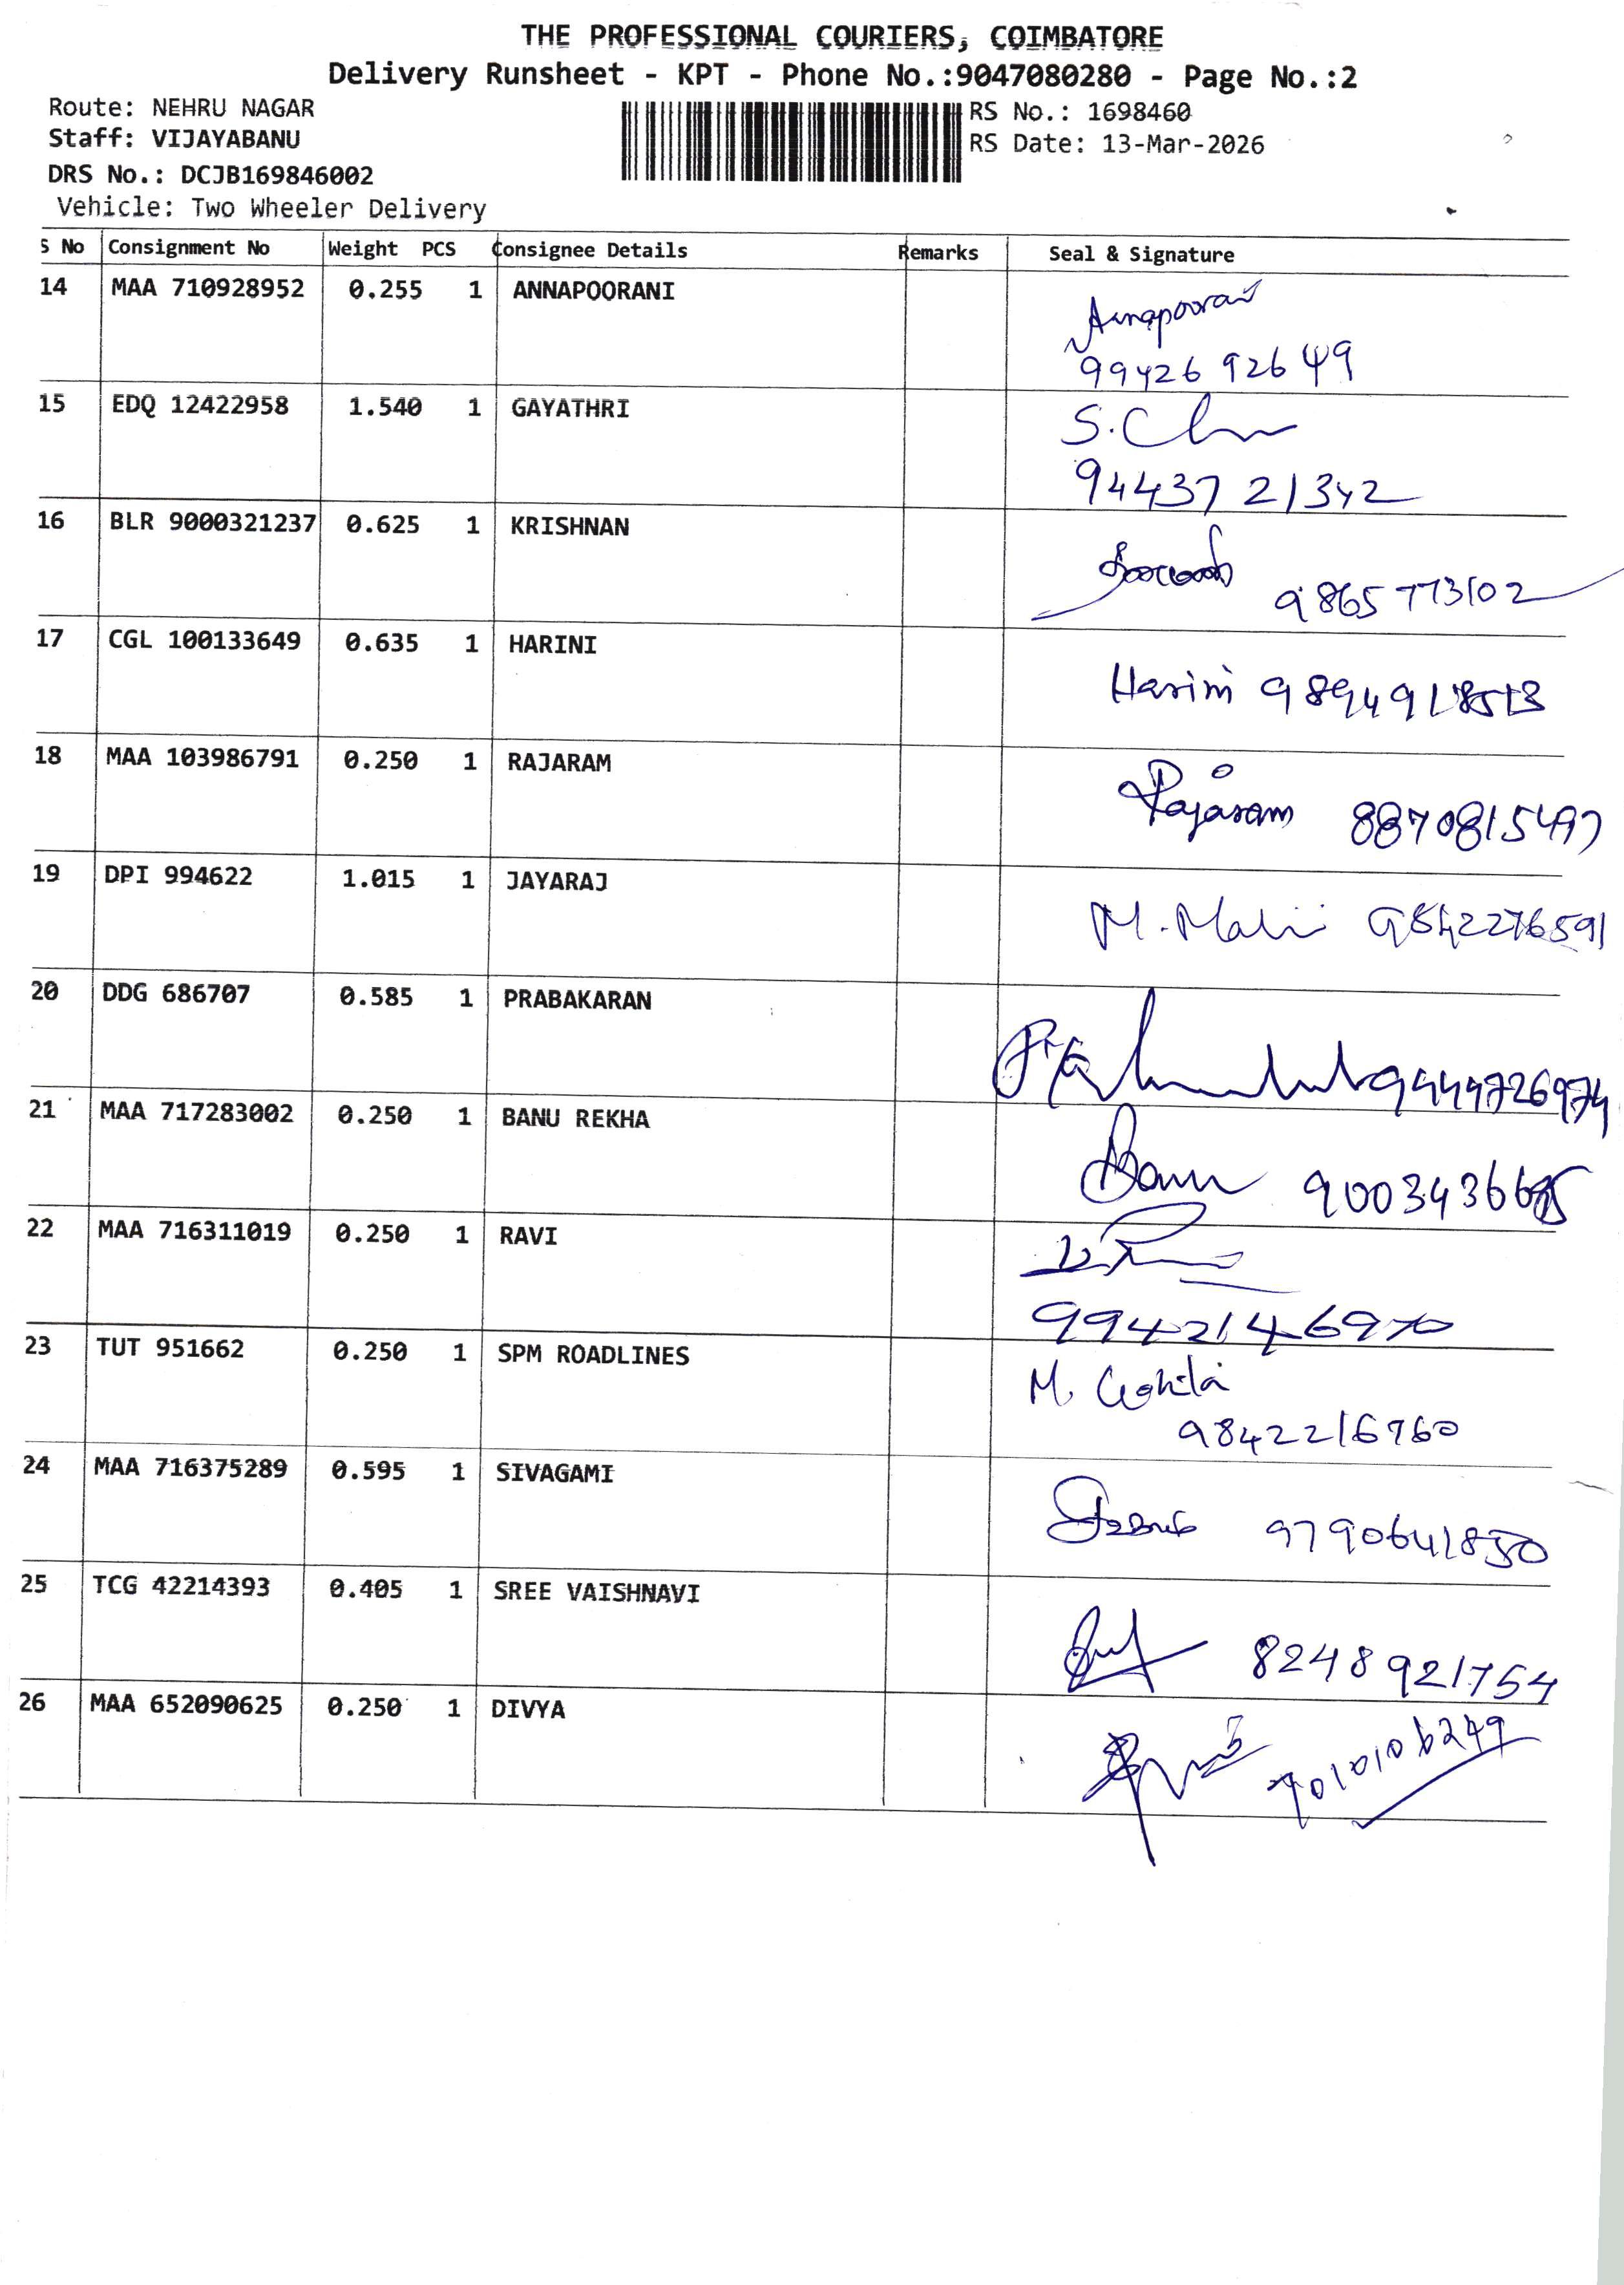 THE PROFESSIONAL COURIERS, COIMBATORE
Delivery Runsheet - KPT - Phone No.:9047080280 - Page No.:2
Route: NEHRU NAGAR
RS No.: 1698460
Staff: VIJAYABANU
RS Date: 13-Mar-2026
DRS No.: DCJB169846002
Vehicle: Two Wheeler Delivery
S No Consignment No Weight PCS Consignee Details Remarks Seal & Signature
14 MAA 710928952 0.255 1 ANNAPOORANI
99426 92649
15 EDQ 12422958 1.540 1 GAYATHRI
94437 21342
16 BLR 9000321237 0.625 1 KRISHNAN
9865773102
17 CGL 100133649 0.635 1 HARINI
Harini
18 MAA 103986791 0.250 1 RAJARAM
Rajaram 8870815497
19 DPI 994622 1.015 1 JAYARAJ
9842276591
20 DDG 686707 0.585 1 PRABAKARAN
21 MAA 717283002 0.250 1 BANU REKHA
Banu
22 MAA 716311019 0.250 1 RAVI
9942146970
23 TUT 951662 0.250 1 SPM ROADLINES
M.
9842216760
24 MAA 716375289 0.595 1 SIVAGAMI
25 TCG 42214393 0.405 1 SREE VAISHNAVI
8248921754
26 MAA 652090625 0.250 1 DIVYA